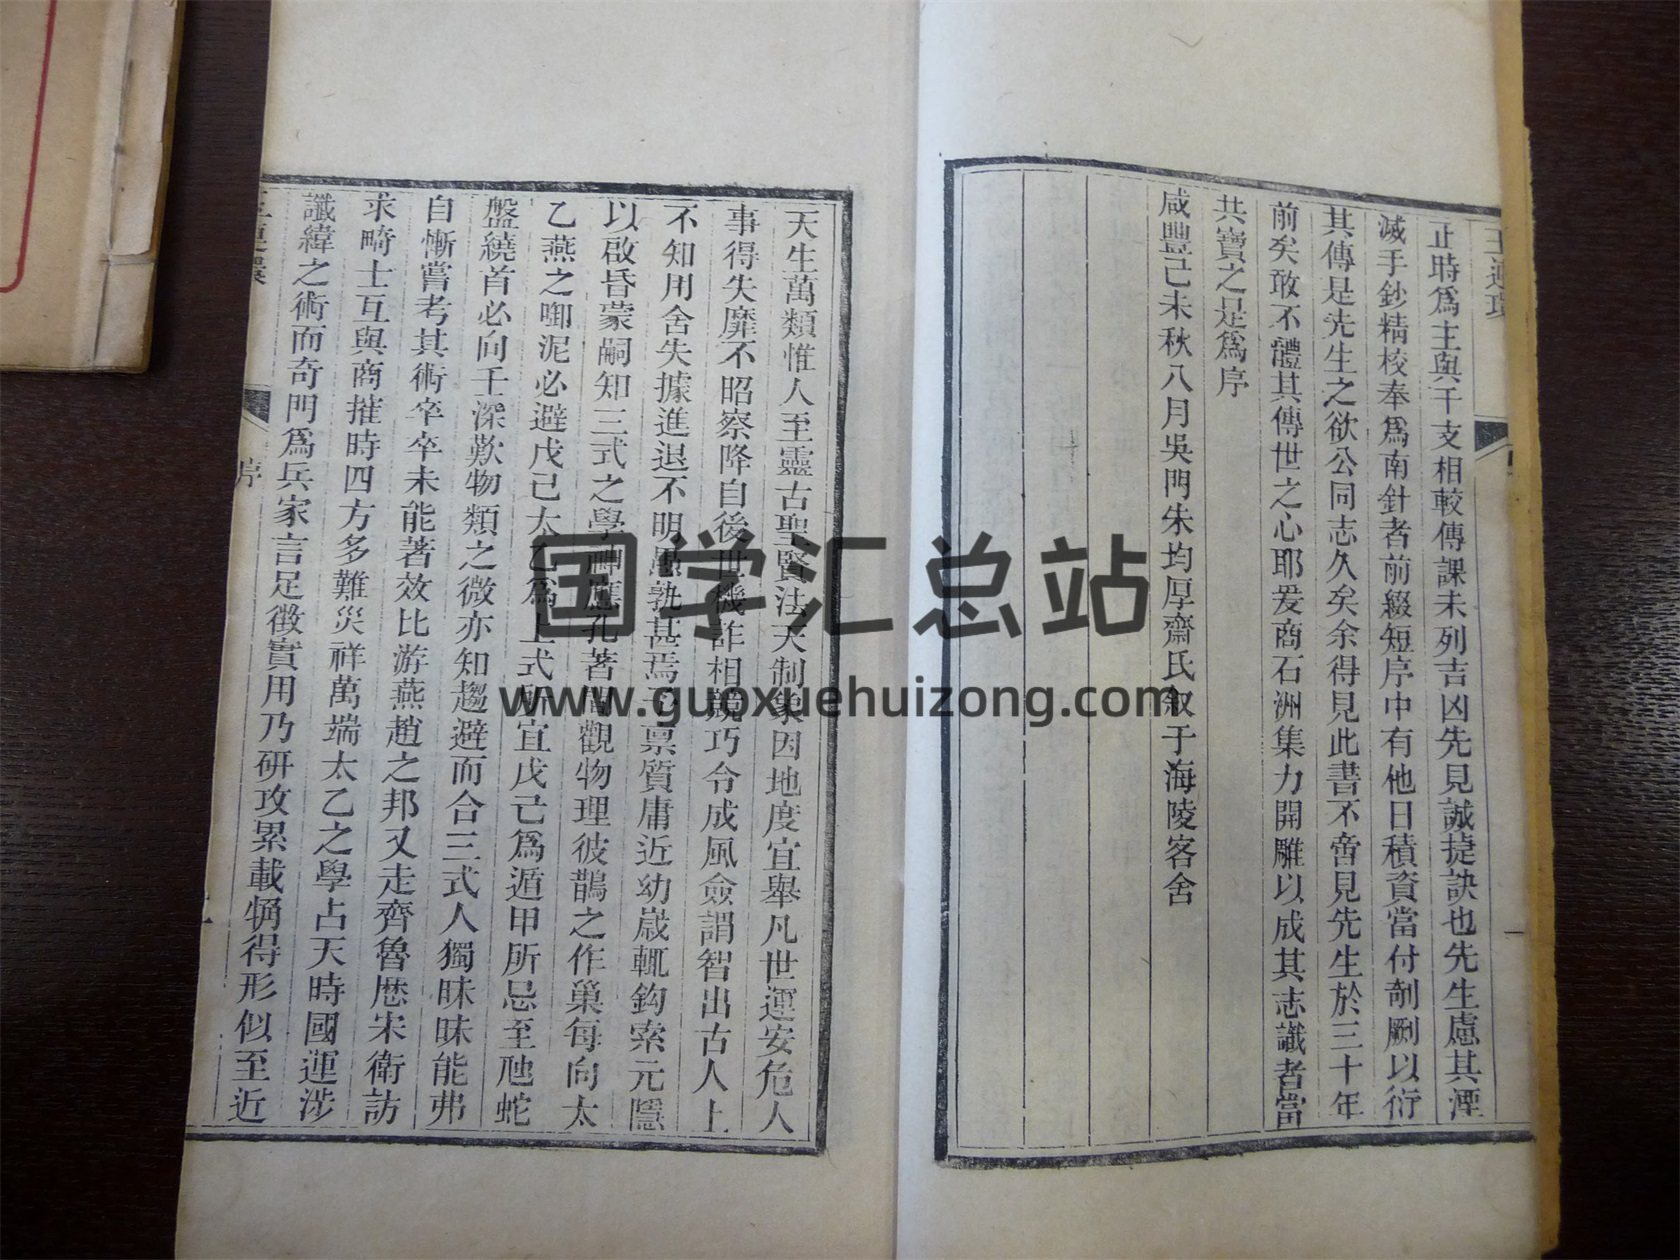 正時為主與干支相較傳課未列吉凶先見誠捷訣也先生慮其湮
滅手鈔精校奉為南針者前綴短序中有他日積資當付剞劂以衍
其傳是先生之欲公同志久矣余得見此書不啻見先生於三十年
前矣敢不體其傳世之心耶爰商石洲集力開雕以成其志識者當
共寶之是為序
咸豐己未秋八月吳門朱均厚齋氏叙于海陵客舍
天生萬類惟人至靈古聖賢法天制象因地度宜舉凡世運安危人
事得失靡不昭察降自後世機詐相競巧令成風僉謂智出古人上
不知用舍失據進退不明愚孰甚焉予稟質庸近幼嵗輒鈎索元隱
以啟昏蒙嗣知三式之學觀物理彼鵲之作巢每向太
乙燕之啣泥必避戊己太乙為上式所宜戊己為遁甲所忌至虺蛇
盤繞首必向壬深歎物類之微亦知趨避而合三式人獨昧昧能弗
自慚嘗考其術卒卒未能著效比游燕趙之邦又走齊魯歴宋衛訪
求畸士互與商搉時四方多難災祥萬端太乙之學占天時國運涉
讖緯之術而奇門為兵家言足徵實用乃研攻累載犓得形似至近
序
国学汇总站
www.guoxuehuizong.com